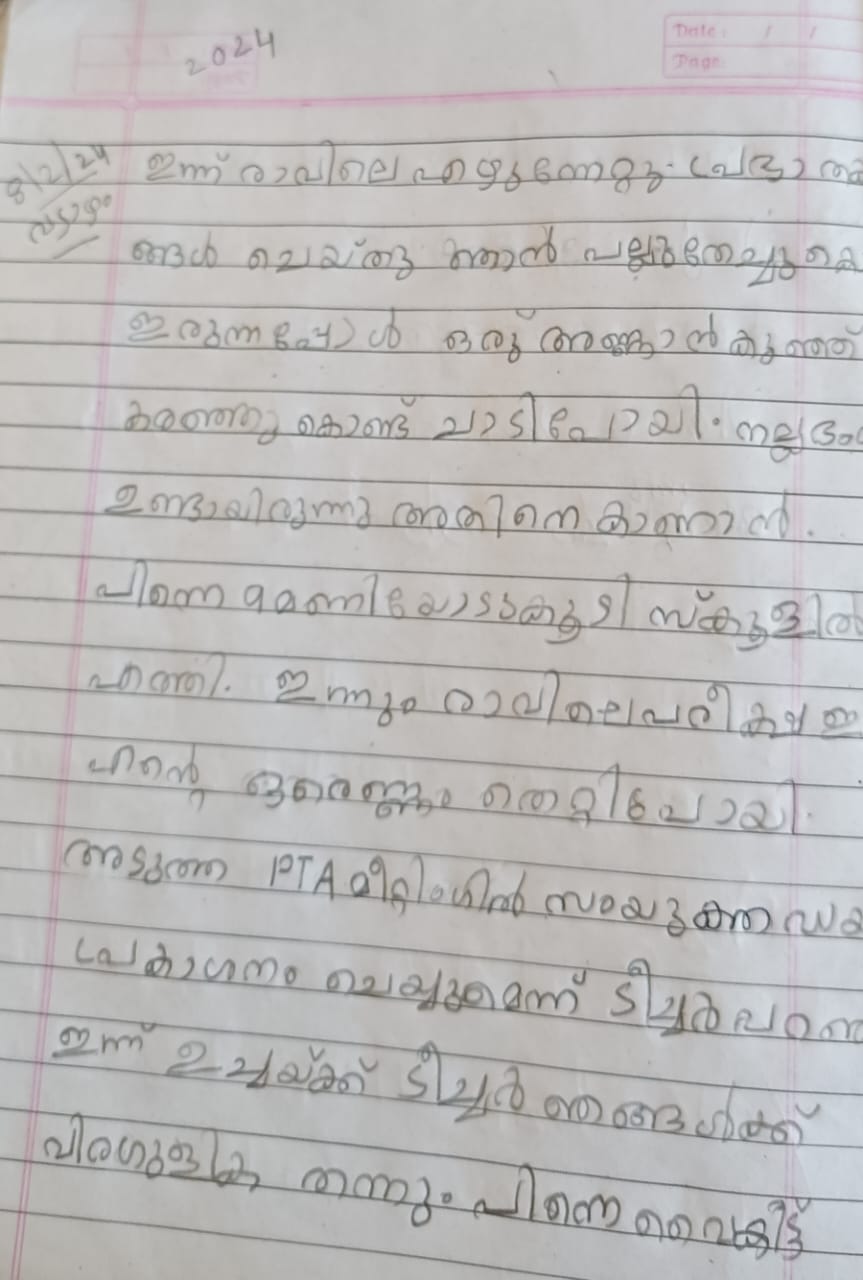 2024
Date: / /
Page:
8/2/24
വ്യാഴം
ഇന്ന് രാവിലെ എഴുന്നേറ്റു. പ്രഭാത
ങ്ങൾ ചെയ്തു ഞാൻ പല്ലുതേച്ചു
ഇരുന്നപ്പോൾ ഒരു അണ്ണാൻകുഞ്ഞ്
കരഞ്ഞു കൊണ്ട് ചാടിപോയി. നല്ല
ഉണ്ടായിരുന്നു അതിനെ കാണാൻ.
പിന്നെ 9 മണിയോടുകൂടി സ്കൂളിൽ
എത്തി. ഇന്നും രാവിലെ പരീക്ഷ
എന്റെ ഒരെണ്ണം തെറ്റിപോയി.
അടുത്ത PTA മീറ്റിംഗിൽ സംയുക്ത ഡ
പ്രകാശനം ചെയ്യുമെന്ന് ടീച്ചർ പറഞ
ഇന്ന് ഉച്ചയ്ക്ക് ടീച്ചർ ഞങ്ങൾക്ക്
വിരഗുളിക തന്നു. പിന്നെ വൈകിട്ട്